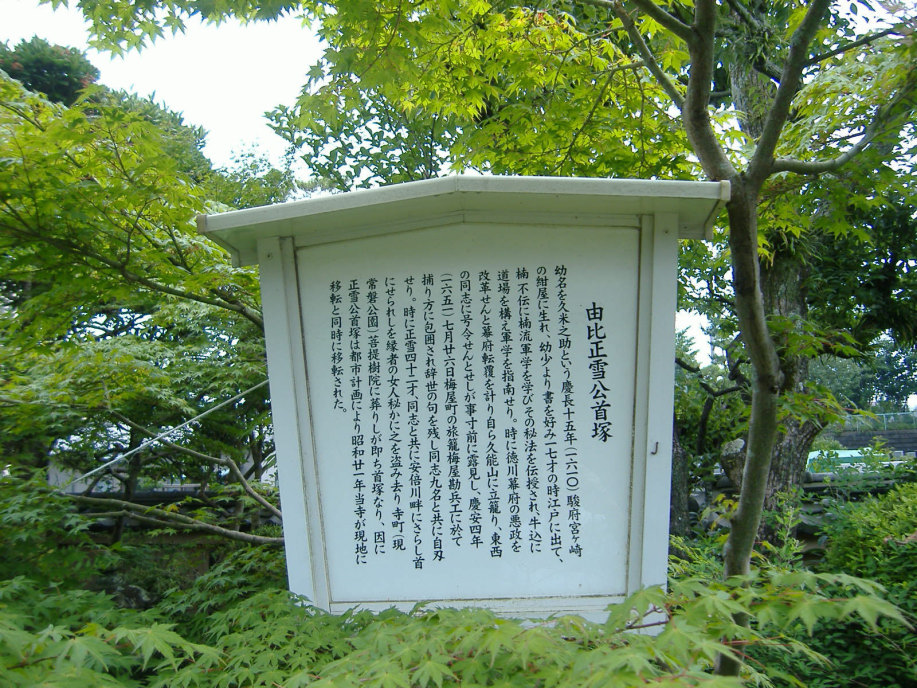 由比正雪公首塚
幼名を久米之助という慶長十五年(一六一〇)駿府宮ヶ崎
の紺屋に生れ、幼少より書を好み一七才の時江戸に出て、
楠不伝に楠流軍学を学びその秘法を伝授され牛込に
道場を構え軍学を指南せり。時に徳川幕府の悪政を
改革せんと幕府転覆を計り自ら久能山に立籠り、東西
の同志に号令せんとせしが事寸前に露見し、慶安四年
(一六五一)七月廿六日梅屋町の旅籠梅屋勘兵工に於て
捕り方に包囲され辞世の句を残し同志九名と共に自刃
せり。時に正雪四十二才、同志らと共に安倍川畔にさらし首
にせられしを縁者の女人秘かに之を盗み去り寺町(現
常盤公園)菩提樹院に葬りしが即ち首塚なり、因に
正雪公首塚は都市計画により昭和廿年当寺が現地に
移転と同時に移転された。